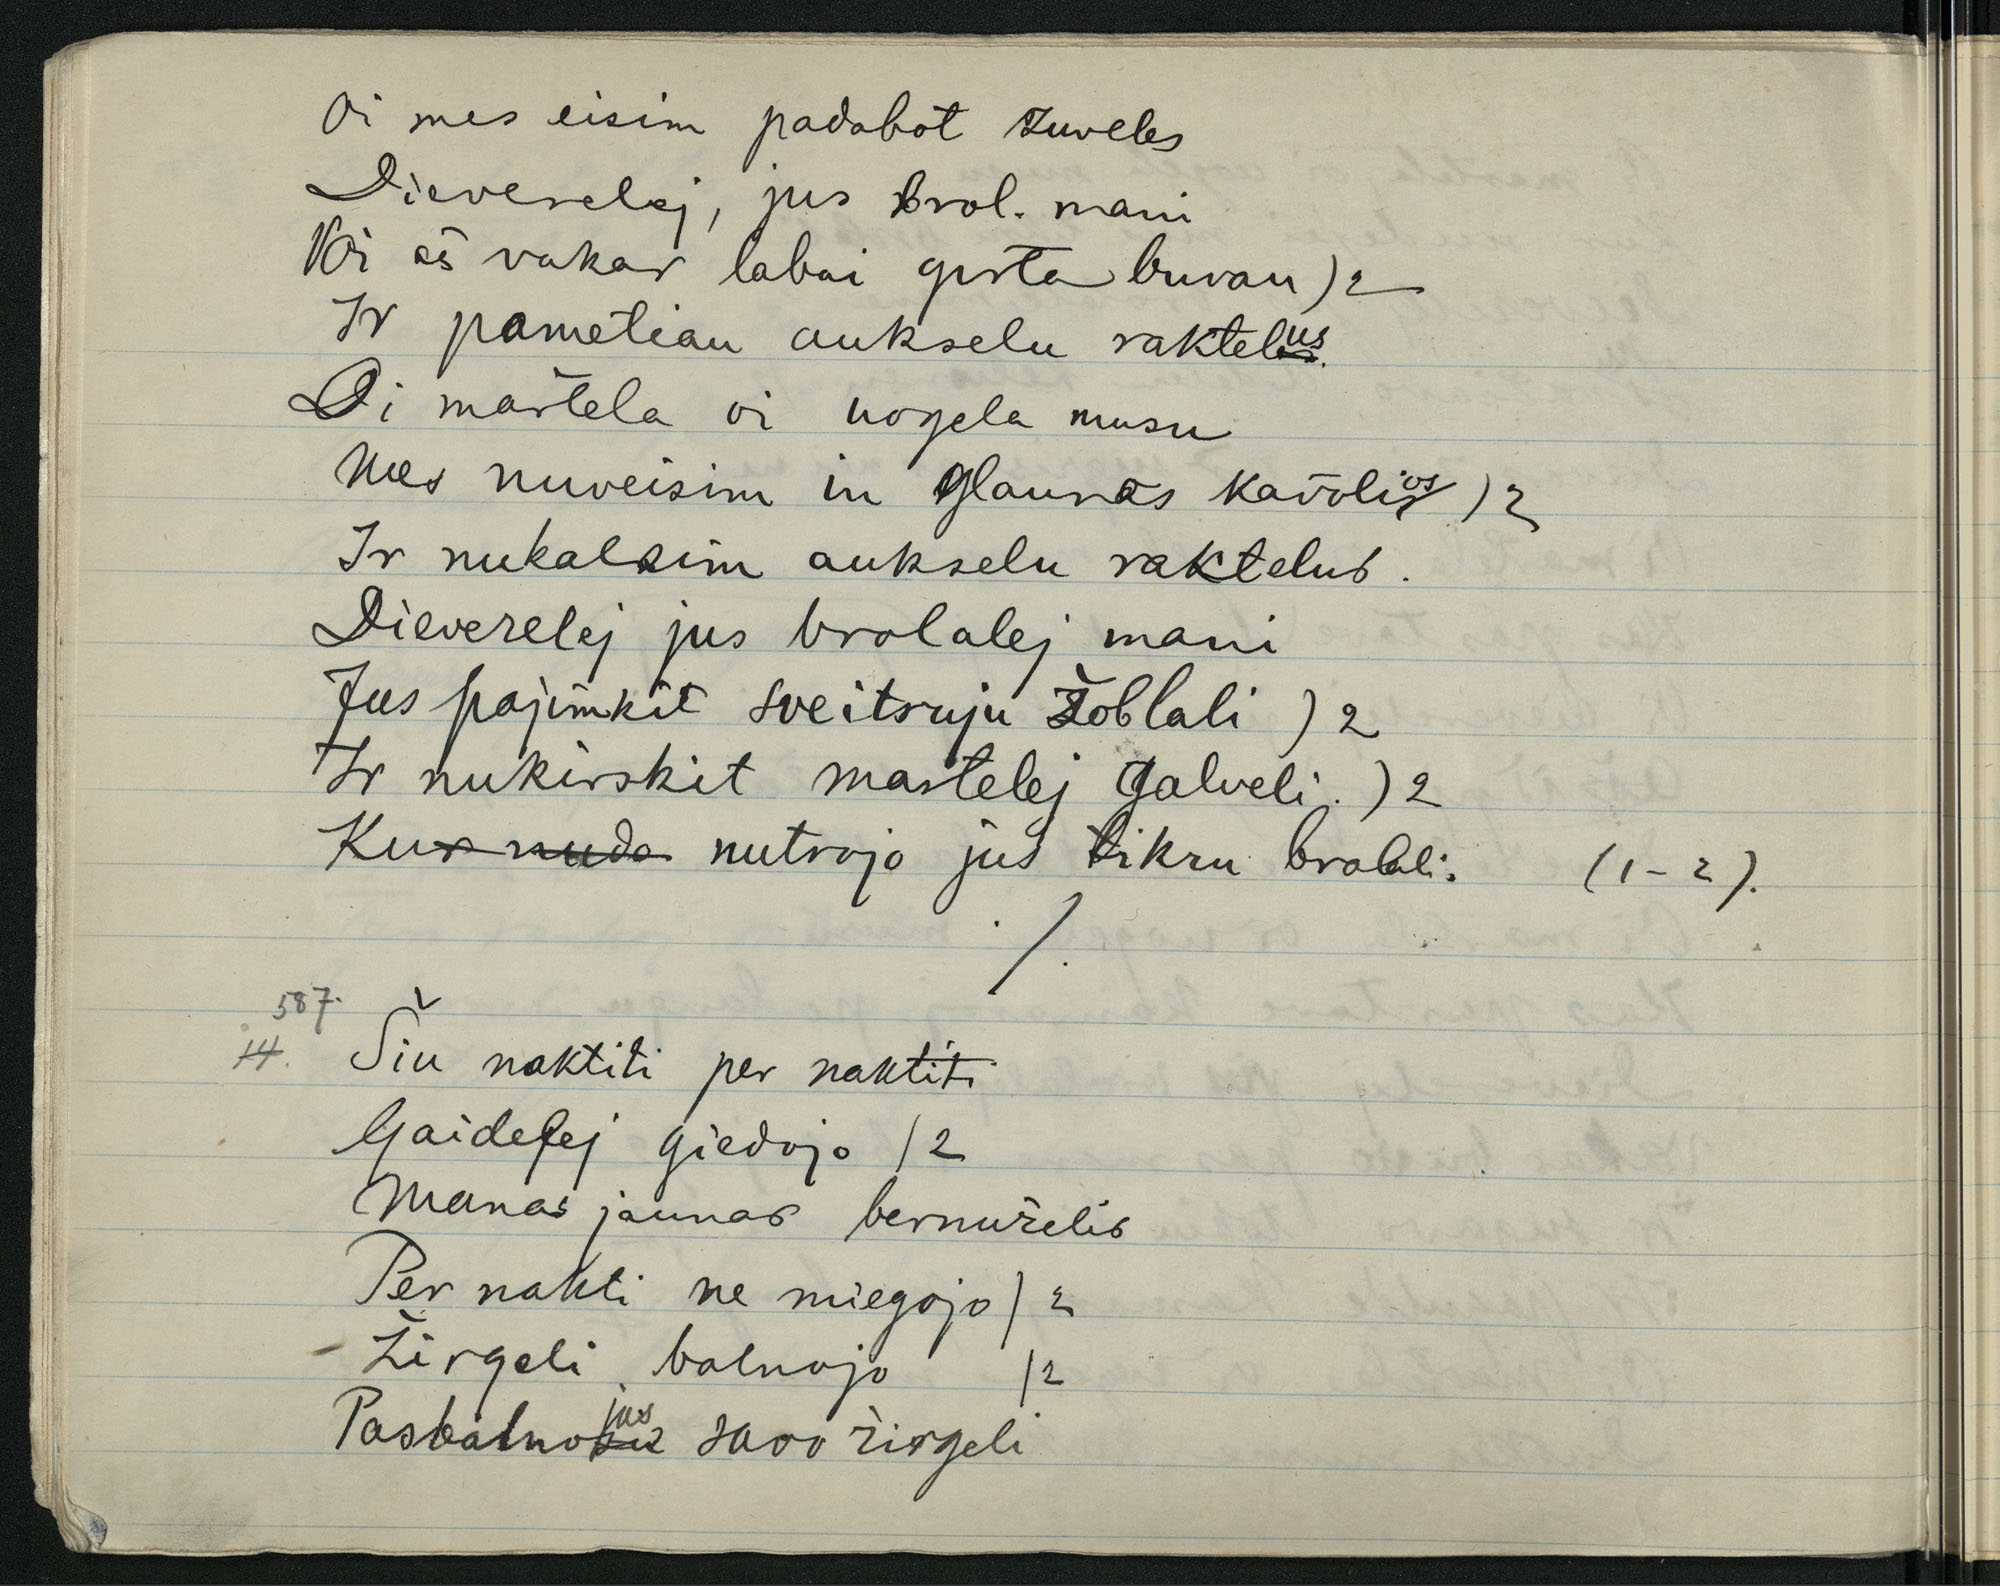 Oi mes eisim padabot zuveles
Dieverelej, jus brol. mani
Oi aš vakar labai girta buvau )2
Ir pametiau aukselu raktelus.
Oi martela oi uogela musu
Mes nuveisim in glaunas kavolios )2
Ir nukalsim aukselu raktelus.
Dieverelej jus brolalej mani
Jus pajimkit sveitruju žoblali )2
Ir nukirskit martelej galveli. )2
Kur nuda nutrojo jus tikru brolali. (1-2).
./.
587.
14. Šiu naktiti per naktiti
Gaidelej giedojo /2
Manas jaunas bernuželis
Per nakti ne miegojo )2
Žirgeli balnojo /2
Pasbalnojus savo žirgeli